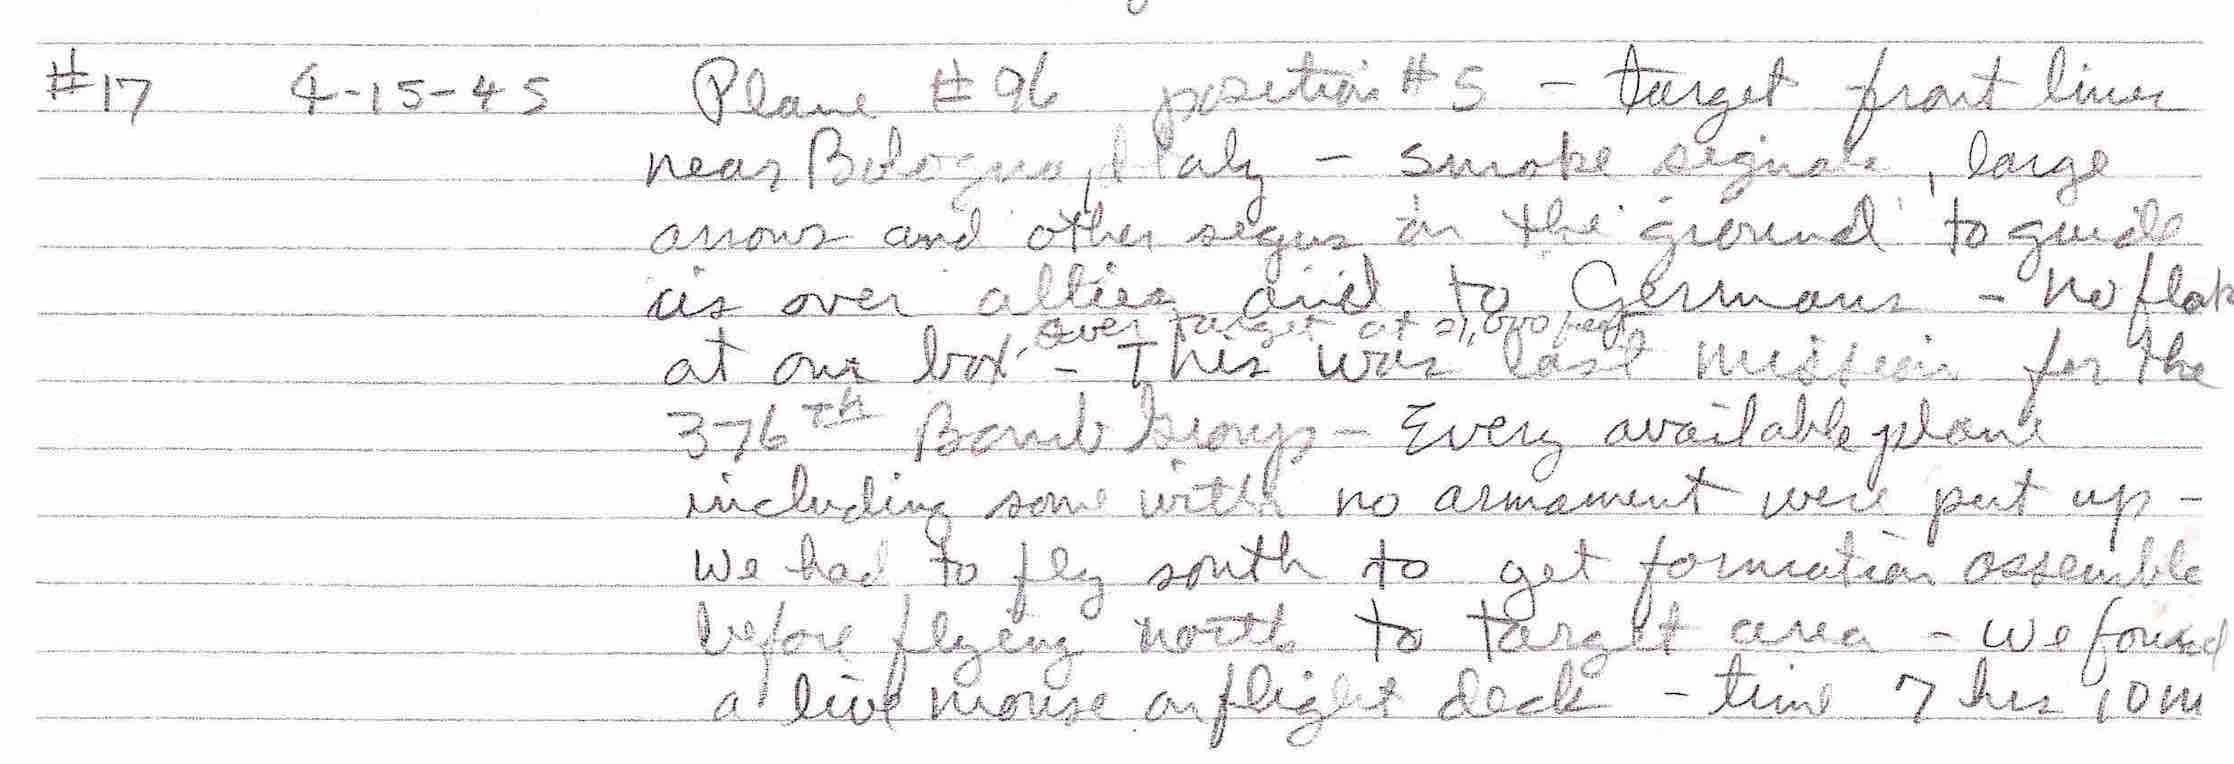 #17 4-15-45 Plane #96 position #5 - target front lines
near Bologna, Italy - smoke signals, large
arrows and other signs on the ground to guide
us over allies and to Germans - no flak
over target at 21,000 feet
at our box. - This was last mission for the
376th Bomb Group - Every available plane
including some with no armament were put up -
We had to fly south to get formation assemble
before flying north to target area - we found
a live mouse on flight deck - time 7 hrs 10m